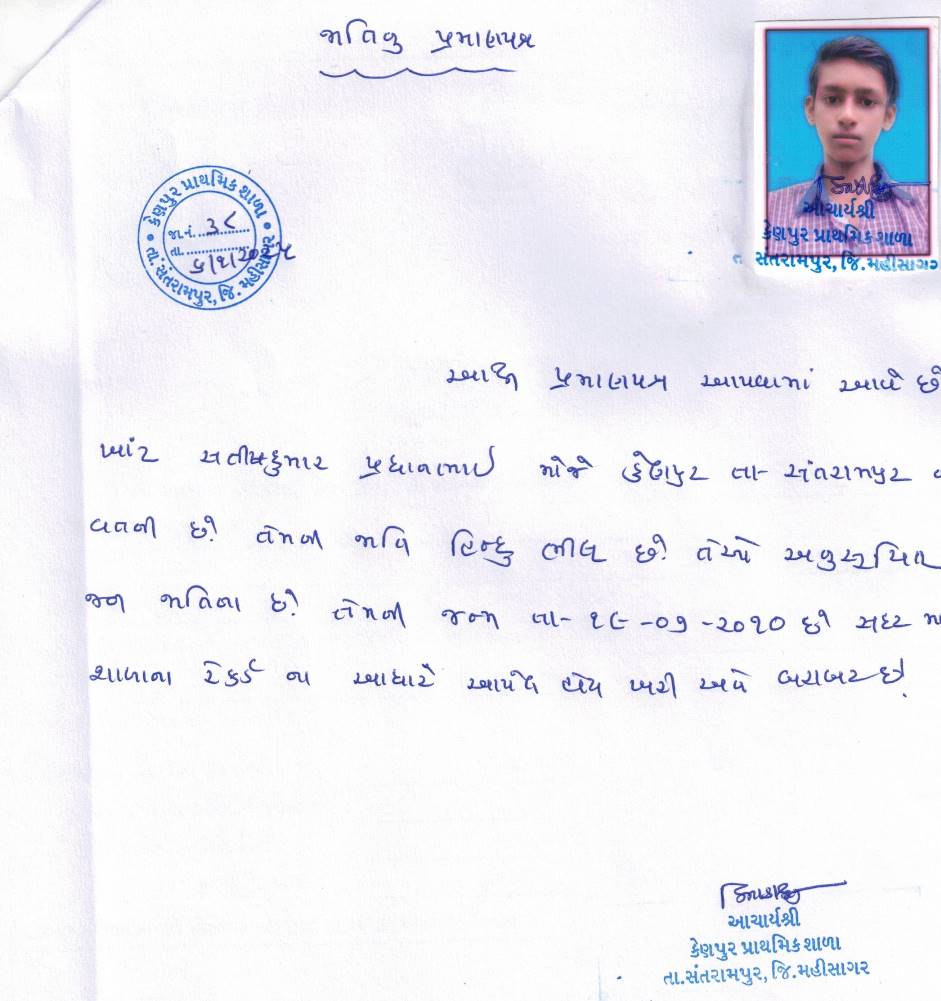 જાતિનુ પ્રમાણપત્ર
કેણપુર પ્રાથમિક શાળા
જા.નં. ૩૮
તા. ૬/૧/૨૦૨૫
તા.સંતરામપુર, જિ. મહીસાગર
આચાર્યશ્રી
કેણપુર પ્રાથમિક શાળા
સંતરામપુર, જિ.મહીસાગર
આથી પ્રમાણપત્ર આપવામાં આવે છે
ખાંટ સતીષકુમાર પ્રધાનભાઈ મોજે કેણપુર તા- સંતરામપુર ના
વતની છે. તેમની જાતિ હિન્દુ ભીલ છે. તેઓ અનુસૂચિત
જન જાતિના છે. તેમની જન્મ તા- ૧૯-૦૭-૨૦૧૦ છે સદર
શાળાના રેકર્ડ ના આધારે આપેલ હોય ખરી અને બરાબર છે.
આચાર્યશ્રી
કેણપુર પ્રાથમિક શાળા
તા.સંતરામપુર, જિ.મહીસાગર